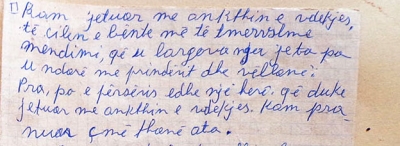 Kam jetuar me ankthin e vdekjes,
të cilën e bënte më të tmerrshme
mendimi, që u largova nga jeta pa
u ndarë me prindërit dhe vëllanë.
Pra, po e përsëris edhe një herë, që duke
jetuar me ankthin e vdekjes, kam pra-
nuar çmë thanë ata.